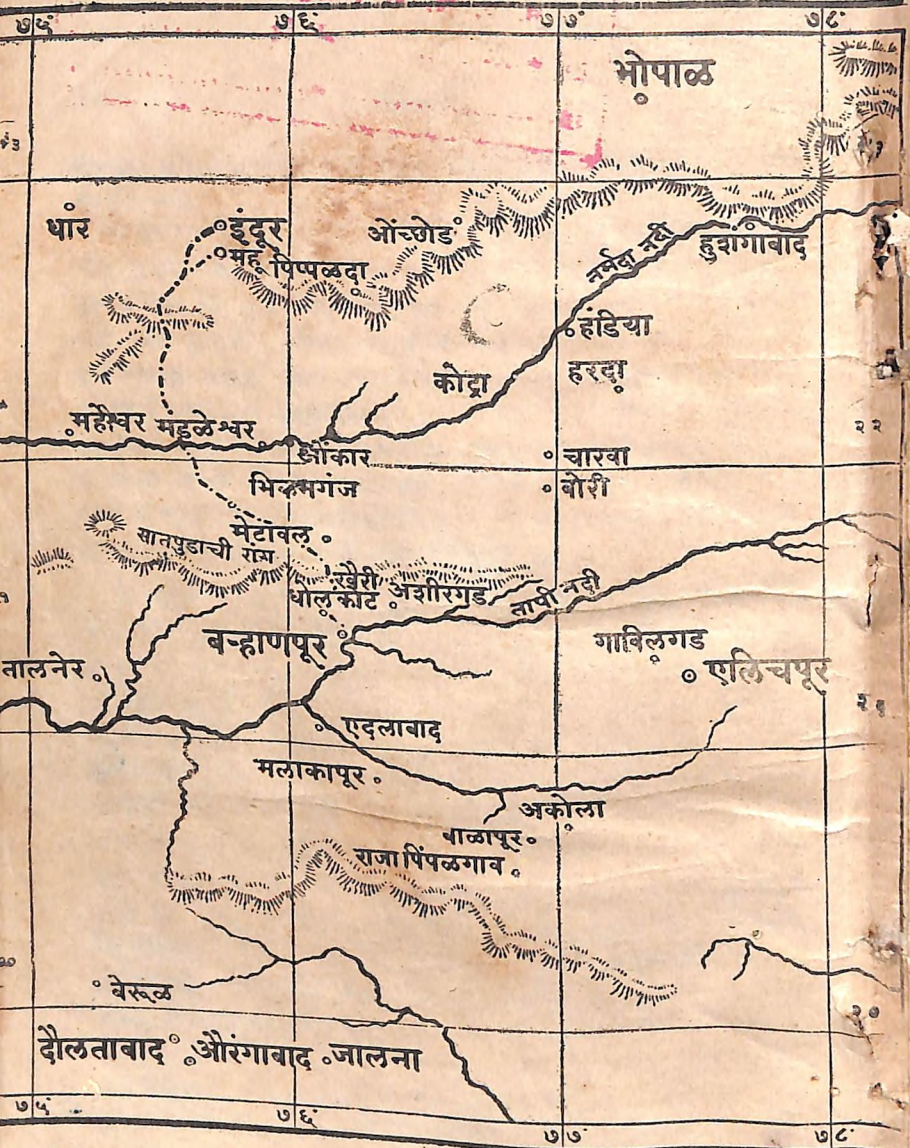 ७५° ७६° ७७° ७८°
भोपाळ
२३
धार
इंदूर
महू
पिप्पळदा
ओंच्छोड
नर्मदा नदी
हुशंगाबाद
हंडिया
हरदा
कोट्रा
महेश्वर
मंडळेश्वर
ओंकार
चारवा
बोरी
२२
भिकमगंज
मेटावल
सातपुडाची रांग
खैरी
धोलकोट
अशीरगड
तापी नदी
बऱ्हाणपूर
गाविलगड
एलिचपूर
तालनेर
२१
एदलाबाद
मलाकापूर
अकोला
बाळापूर
राजा पिंपळगाव
वेरूळ
२०
दौलताबाद
औरंगाबाद
जालना
७५° ७६° ७७° ७८°